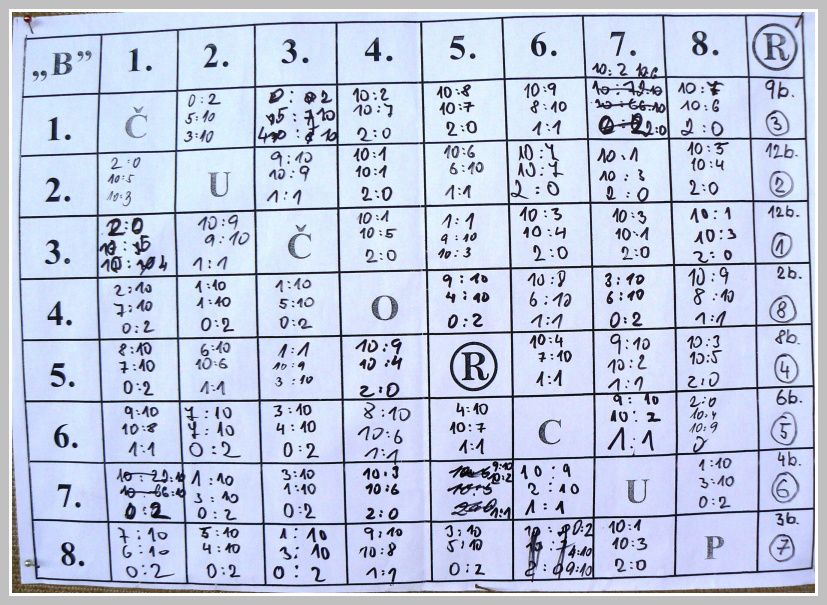 „B” 1. 2. 3. 4. 5. 6. 7. 8. R
1. Č 0:2 10:2 10:8 10:9 10:2 9b.
5:10 10:7 10:7 8:10 10:6
3:10 2:0 2:0 1:1 2:0 2:0 3
2. 2:0 U 9:10 10:1 10:6 10:1 10:5 12b.
10:5 10:9 10:1 6:10 10:3 10:4
10:3 1:1 2:0 1:1 2:0 2:0 2:0 2
3. 2:0 10:9 Č 10:1 1:1 10:3 10:3 10:1 12b.
9:10 10:5 9:10 10:4 10:1 10:3
1:1 2:0 10:3 2:0 2:0 2:0 1
4. 2:10 1:10 1:10 O 9:10 10:8 3:10 10:9 2b.
7:10 1:10 5:10 4:10 6:10 6:10 8:10
0:2 0:2 0:2 0:2 1:1 0:2 1:1 8
5. 8:10 6:10 1:1 10:9 R 10:4 9:10 10:3 8b.
7:10 10:6 10:9 10:4 7:10 10:2 10:5
0:2 1:1 3:10 2:0 1:1 1:1 2:0 4
6. 9:10 3:10 8:10 4:10 C 9:10 2:0 6b.
10:8 4:10 10:6 10:7 10:2 10:4
1:1 0:2 0:2 1:1 1:1 1:1 10:9 5
7. 1:10 3:10 10:3 9:10 10:9 U 1:10 4b.
3:10 1:10 10:6 10:2 2:10 3:10
0:2 0:2 0:2 2:0 1:1 1:1 0:2 6
8. 7:10 5:10 1:10 9:10 3:10 0:2 10:1 P 3b.
6:10 4:10 3:10 10:8 5:10 4:10 10:3
0:2 0:2 0:2 1:1 0:2 9:10 2:0 7